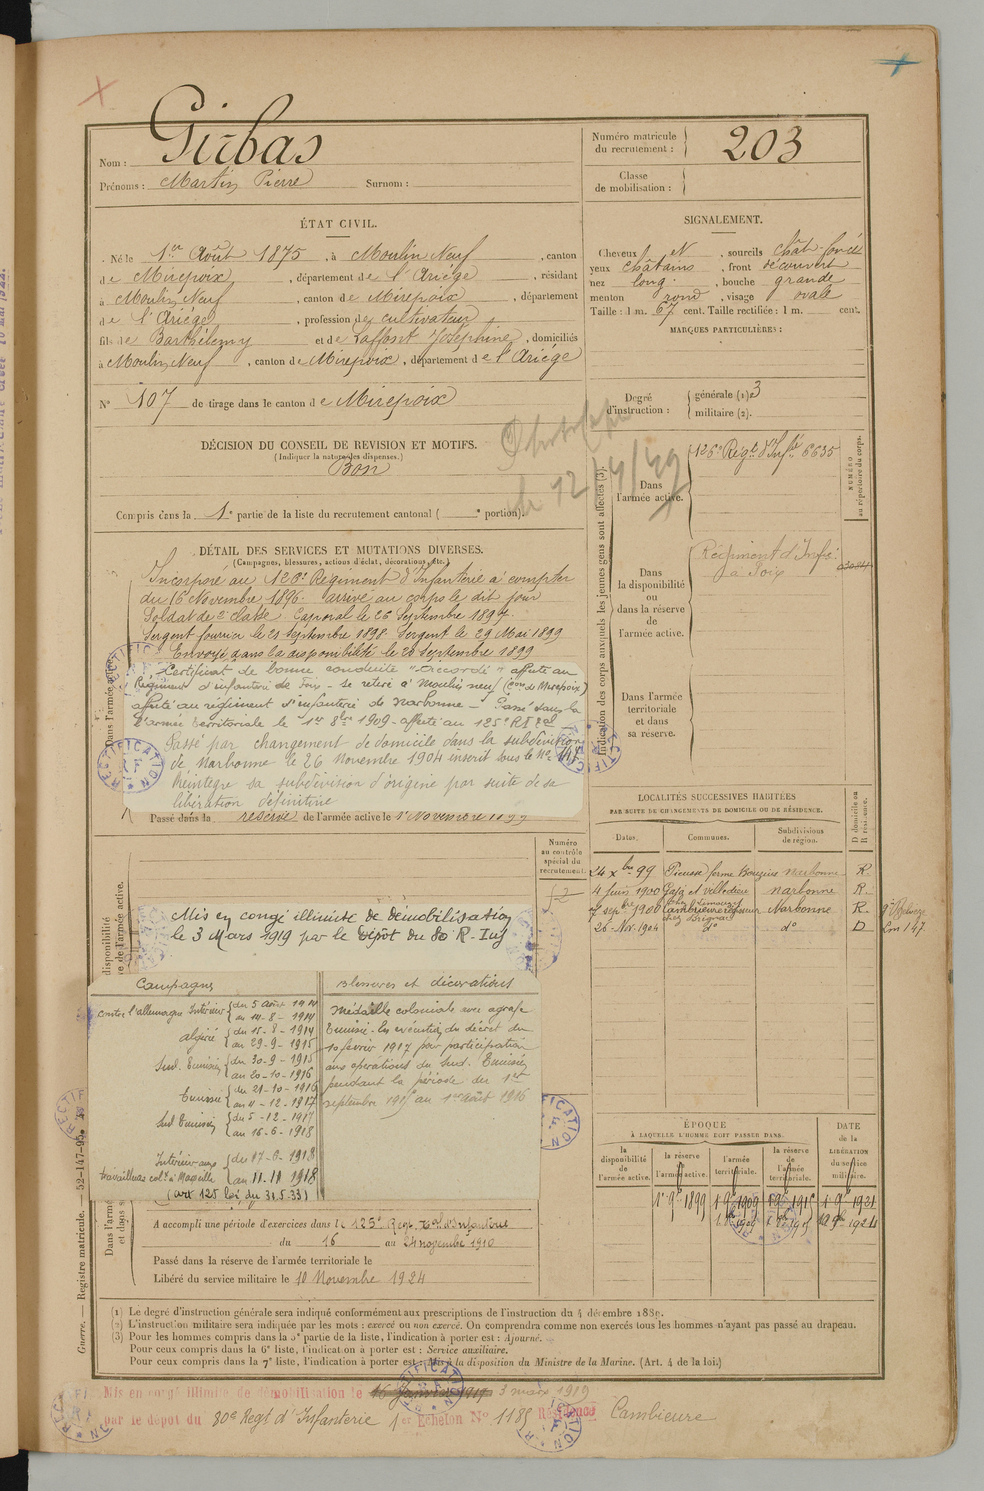 Nom : Girbas
Prénoms : Martin Pierre Surnom :
Numéro matricule du recrutement : 203
Classe de mobilisation :
ÉTAT CIVIL.
Né le 1er Août 1875, à Moulin Neuf, canton
de Mirepoix, département de l'Ariége, résidant
à Moulin Neuf, canton de Mirepoix, département
de l'Ariége, profession de cultivateur
fils de Barthélemy et de Laffont Joséphine, domiciliés
à Moulin Neuf, canton de Mirepoix, département de l'Ariége
N° 107 de tirage dans le canton de Mirepoix
SIGNALEMENT.
Cheveux N, sourcils chât-foncé
yeux châtains, front découvert
nez long, bouche grande
menton rond, visage ovale
Taille : 1 m. 67 cent. Taille rectifiée : 1 m. cent.
MARQUES PARTICULIÈRES :
Degré d'instruction : générale (1) 3
militaire (2).
DÉCISION DU CONSEIL DE REVISION ET MOTIFS.
(Indiquer la nature des dispenses.)
Bon
le 12/4/49
Compris dans la 1e partie de la liste du recrutement cantonal ( e portion).
DÉTAIL DES SERVICES ET MUTATIONS DIVERSES.
(Campagnes, blessures, actions d'éclat, décorations, etc.)
Incorporé au 126e Régiment d'Infanterie à compter
du 16 Novembre 1896. arrivé au corps le dit jour
Soldat de 2e classe. Caporal le 26 Septembre 1897.
Sergent fourrier le 21 Septembre 1898 Sergent le 29 Mai 1899
Envoyé dans la disponibilité le 20 Septembre 1899
Certificat de bonne conduite "Accordé" affecté au
Régiment d'infanterie de Foix - se retire à Moulin neuf (con de Mirepoix)
affecté au régiment d'infanterie de Narbonne - Passé dans la
l'armée territoriale le 1er 8bre 1909 - affecté au 125e RI
Passé par changement de domicile dans la subdivision
de Narbonne le 26 Novembre 1904 inscrit sous le No 147
Réintègre sa subdivision d'origine par suite de sa
libération définitive
Passé dans la réserve de l'armée active le 1r Novembre 1899
Indication des corps auxquels les jeunes gens sont affectés (3).
Dans l'armée active. 126e Régt d'Infie 6635
NUMÉRO au répertoire du corps.
Dans la disponibilité ou dans la réserve de l'armée active. Régiment d'Infie à Foix
Dans l'armée territoriale et dans sa réserve.
LOCALITÉS SUCCESSIVES HABITÉES
PAR SUITE DE CHANGEMENTS DE DOMICILE OU DE RÉSIDENCE.
Dates. Communes. Subdivisions de région. D domicile ou R résidence.
24 Xbre 99 Narbonne R.
4 Juin 1900 Narbonne R.
7 Sepbre 1900 Narbonne R.
26 Nov. 1904 do do D
Numéro au contrôle spécial du recrutement.
Mis en congé illimité de démobilisation
le 3 Mars 1919 par le Dépôt du 80 R. Inf
Campagnes
contre l'allemagne Intérieur du 5 Août 1914
au 14-8-1914
algérie du 15-8-1914
au 29-9-1915
Sud. Tunisien du 30-9-1915
au 20-10-1916
Tunisie du 21-10-1916
au 4-12-1917
Sud Tunisien du 5-12-1917
au 16-6-1918
Intérieur aux du 17-6-1918
travailleurs colx à Marseille au 11-11-1918
(art 125 loi du 31.5.33)
Blessures et décorations
Médaille coloniale avec agrafe
Tunisie. En exécution du décret du
10 février 1917 pour participation
aux opérations du Sud. Tunisien
pendant la période du 1er
septembre 1915 au 1er Août 1916
A accompli une période d'exercices dans le 125e Régt Teral d'Infanterie
du 16 au 24 novembre 1910
Passé dans la réserve de l'armée territoriale le
Libéré du service militaire le 10 Novembre 1924
ÉPOQUE
À LAQUELLE L'HOMME DOIT PASSER DANS
la disponibilité de l'armée active.
la réserve de l'armée active.
l'armée territoriale.
la réserve de l'armée territoriale.
DATE de la LIBÉRATION du service militaire.
1r 9bre 1899
1 9bre 1909
1 9bre 1921
Guerre. — Registre matricule. — 52-147-95.
(1) Le degré d'instruction générale sera indiqué conformément aux prescriptions de l'instruction du 4 décembre 1889.
(2) L'instruction militaire sera indiquée par les mots : exercé ou non exercé. On comprendra comme non exercés tous les hommes n'ayant pas passé au drapeau.
(3) Pour les hommes compris dans la 5e partie de la liste, l'indication à porter est : Ajourné.
Pour ceux compris dans la 6e liste, l'indication à porter est : Service auxiliaire.
Pour ceux compris dans la 7e liste, l'indication à porter est : Mis à la disposition du Ministre de la Marine. (Art. 4 de la loi.)
Mis en congé illimité de démobilisation le 16 Janvier 1919 3 mars 1919
par le dépôt du 80e Regt d'Infanterie 1er Echelon No 1185 Résidence Cambieure
RECTIFICATION